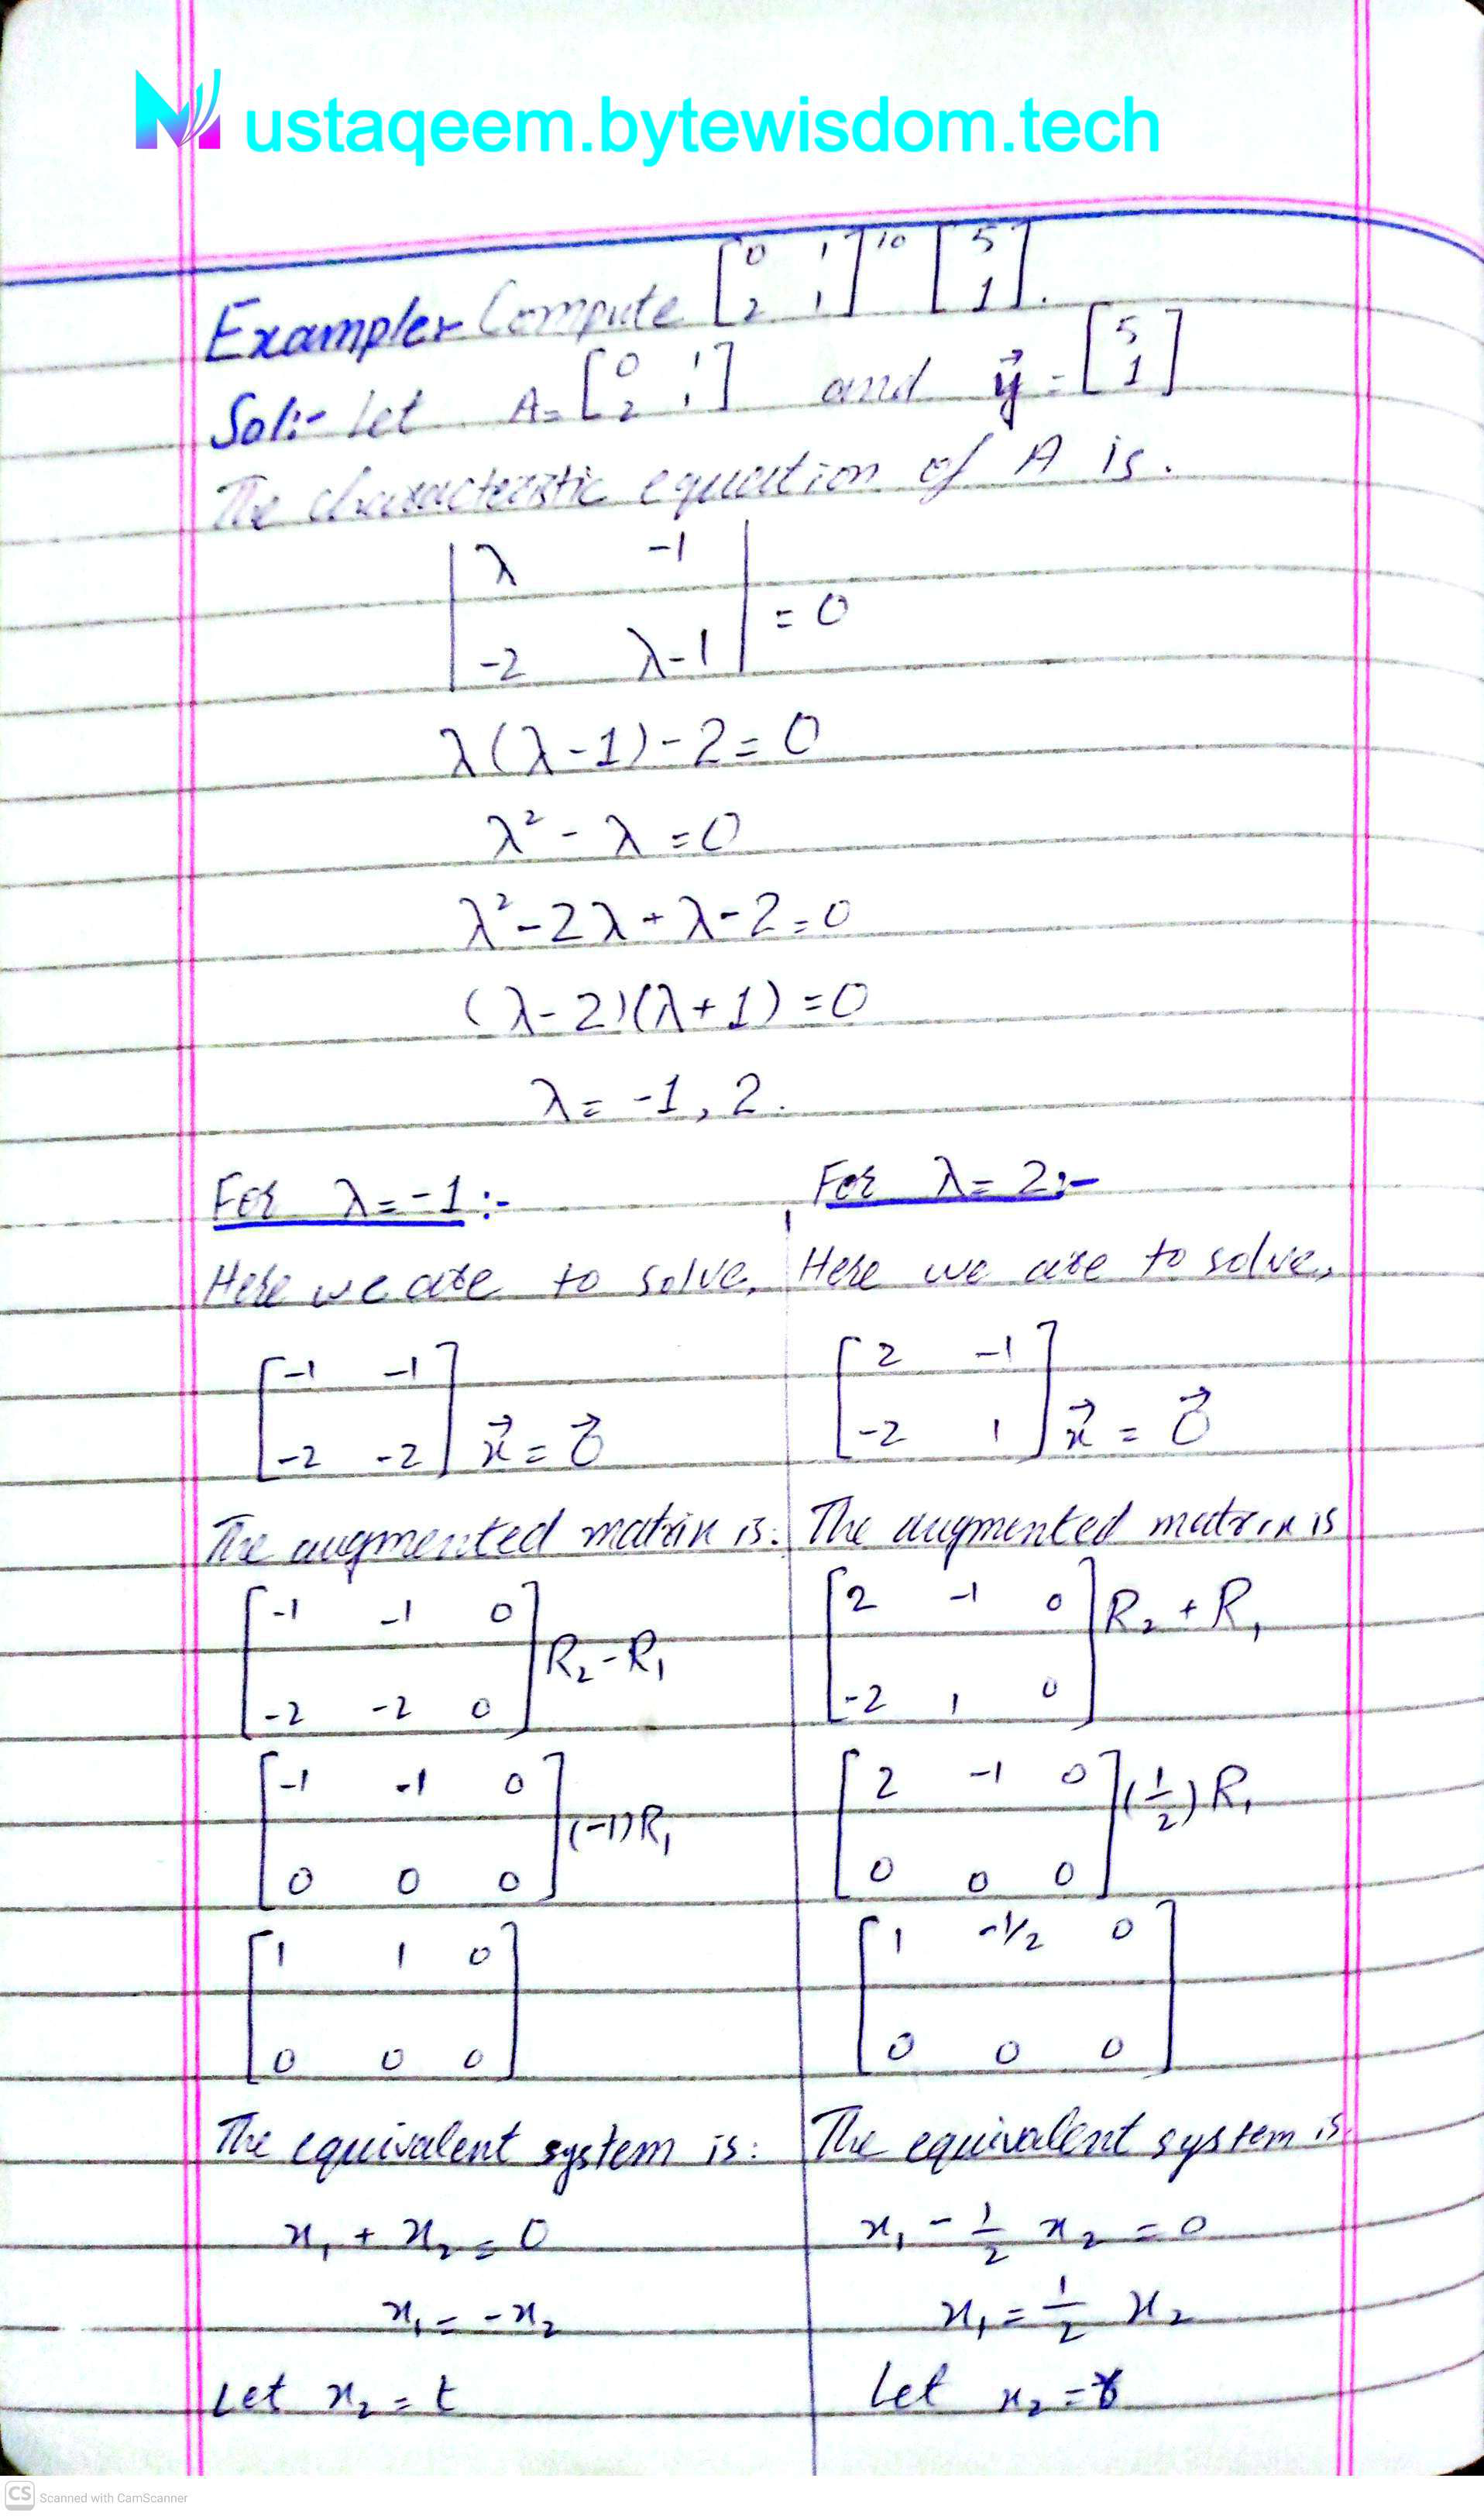 Mustaqeem.bytewisdom.tech
Example:- Compute [0 1; 2 1]^10 [5; 1].
Sol:- Let A = [0 1; 2 1] and y⃗ = [5; 1]
The characteristic equation of A is.
| λ -1 |
| -2 λ-1 | = 0
λ(λ-1)-2 = 0
λ² - λ = 0
λ² - 2λ + λ - 2 = 0
(λ-2)(λ+1) = 0
λ = -1, 2.
For λ = -1 :-
Here we are to solve,
[-1 -1; -2 -2] x⃗ = 0⃗
The augmented matrix is:
[-1 -1 0; -2 -2 0] R₂-R₁
[-1 -1 0; 0 0 0] (-1)R₁
[1 1 0; 0 0 0]
The equivalent system is:
x₁ + x₂ = 0
x₁ = -x₂
Let x₂ = t
For λ = 2:-
Here we are to solve,
[2 -1; -2 1] x⃗ = 0⃗
The augmented matrix is
[2 -1 0; -2 1 0] R₂ + R₁
[2 -1 0; 0 0 0] (1/2) R₁
[1 -1/2 0; 0 0 0]
The equivalent system is.
x₁ - 1/2 x₂ = 0
x₁ = 1/2 x₂
Let x₂ =
CS Scanned with CamScanner